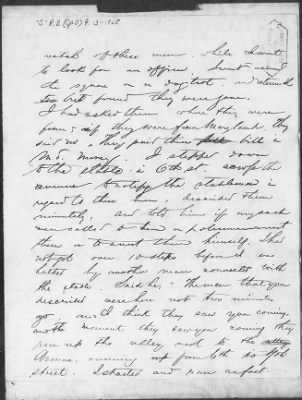 "S" R.B. (JAO) P. 3-1865
watch of these men, while I went
to look for an officer, I went around
the square on a dogtrot, and when I
got back found they were gone.
I had asked them where they were
from; if they were from Maryland, they
said no, they paid their bill in
Md. money. I stepped down
to the stable in 6th st. across the
avenue to notify the stableman in
regard to these men, described them
minutely, and told him if any such
men called to him a policeman
them or to arrest them himself. I had
not got over 10 steps before I was
hailed by another man connected with
the stable. Said he, "The men that you
described were here not two minutes
ago, and I think they saw you coming,
moment they saw you coming they
ran up the alley next to the
Avenue, running up from 6th to
street. I started and ran as fast